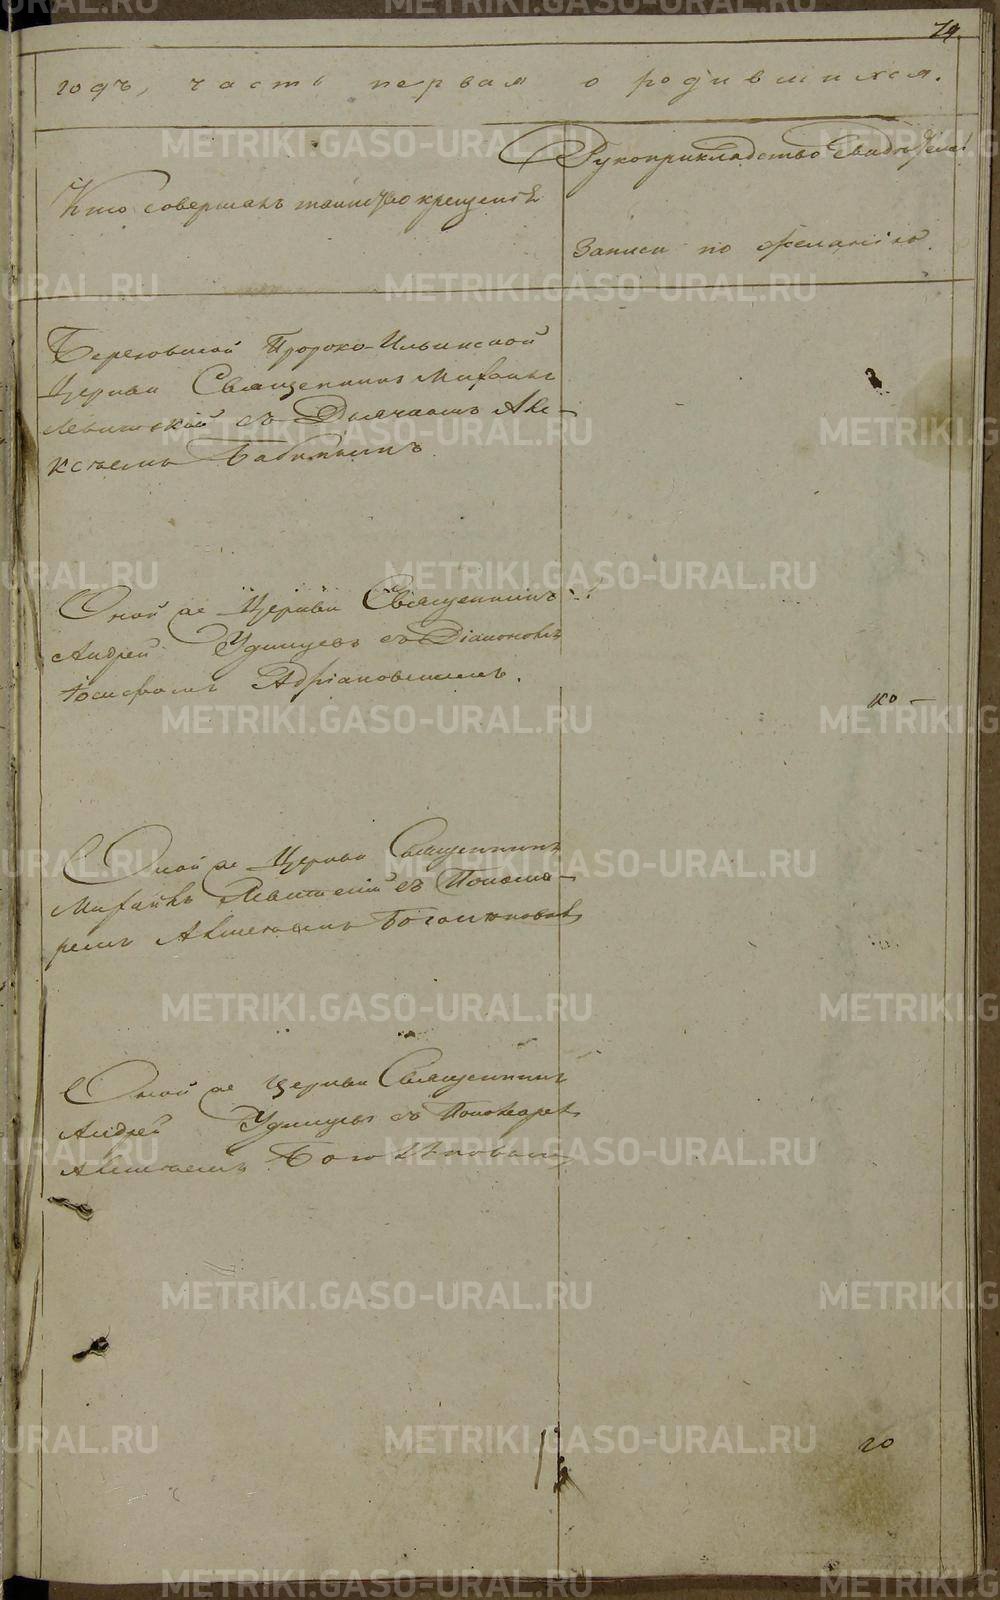 79.
годъ, часть первая о родившихся.
Кто совершалъ таинство крещенія
Рукоприкладство Свидѣтелей
Записи по желанію.
Береговской Пророко-Ильинской
Церкви Священникъ Михаилъ
Левитской съ Дьячкомъ Але-
ксѣемъ
Оной же Церкви Священникъ
Андрей Удинцевъ съ Діакономъ
Іосифомъ Адріановскимъ.
Оной же Церкви Священникъ
Михаилъ Левитскій съ Понома-
ремъ Алексѣемъ
Оной же Церкви Священникъ
Андрей Удинцевъ съ Пономаремъ
Алексѣемъ
METRIKI.GASO-URAL.RU